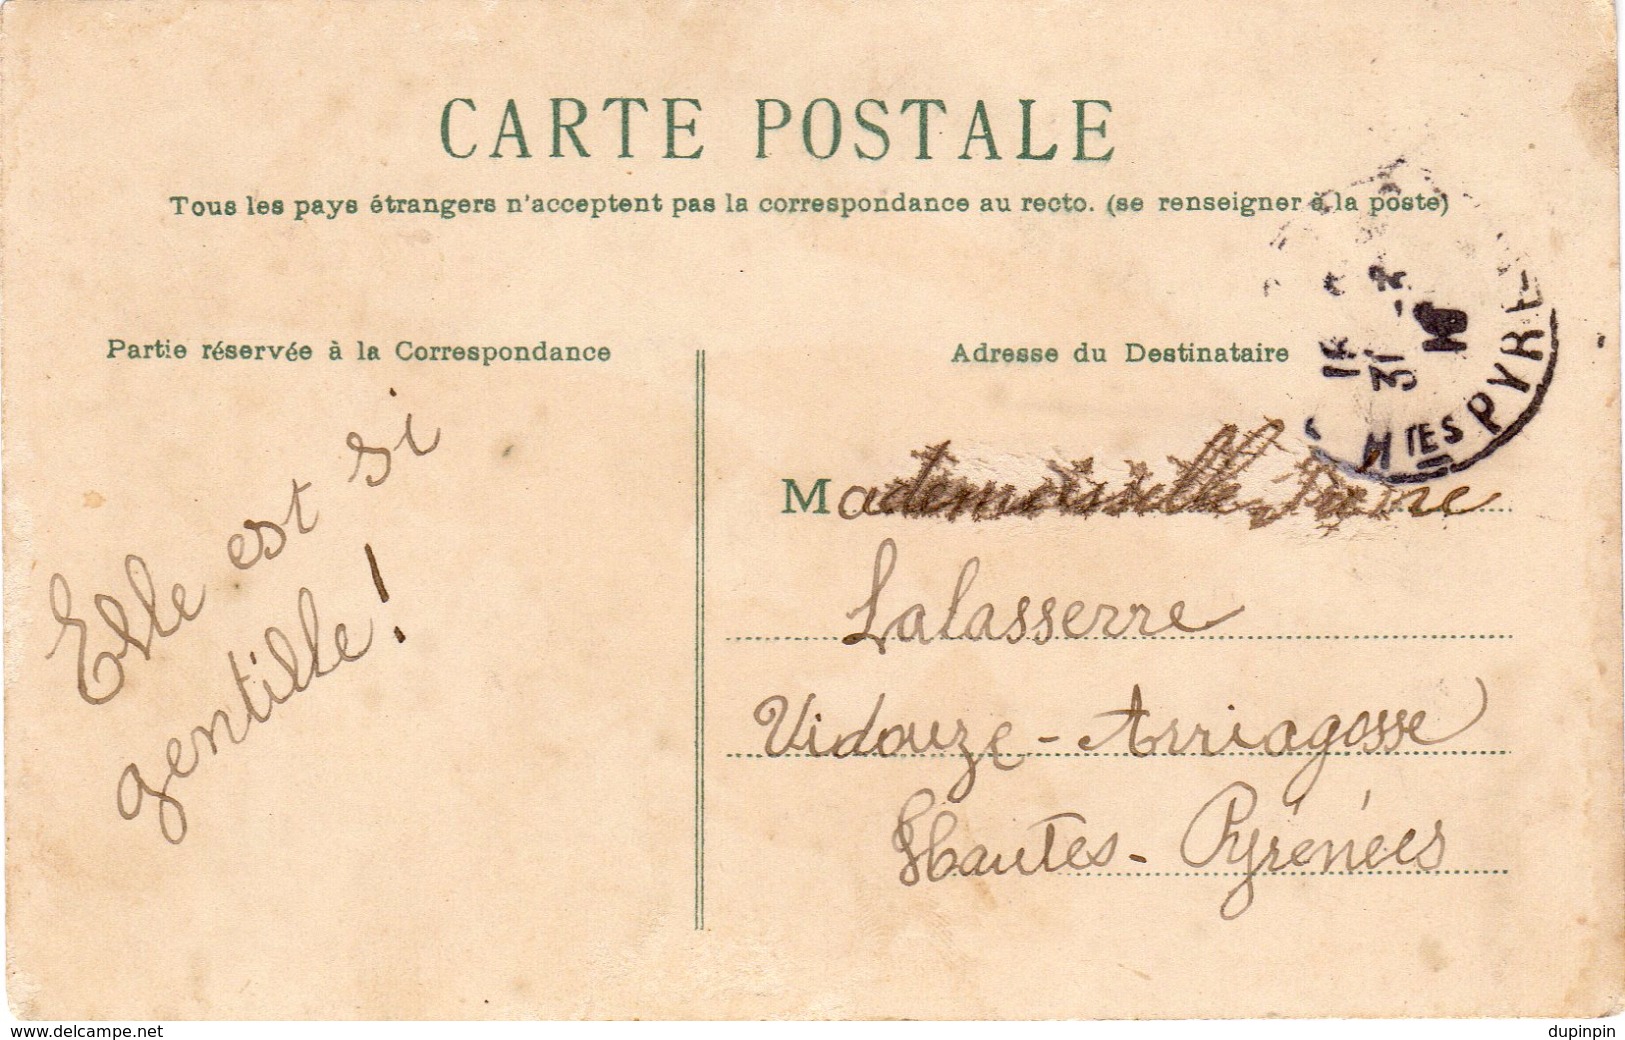 CARTE POSTALE
Tous les pays étrangers n'acceptent pas la correspondance au recto. (se renseigner à la poste)
Partie réservée à la Correspondance
Elle est si
gentille !
Adresse du Destinataire
Mademoiselle
Lalasserre
Vidouze - Arriagosse
Hautes - Pyrénées
31
HTES PYRE
www.delcampe.net
dupinpin